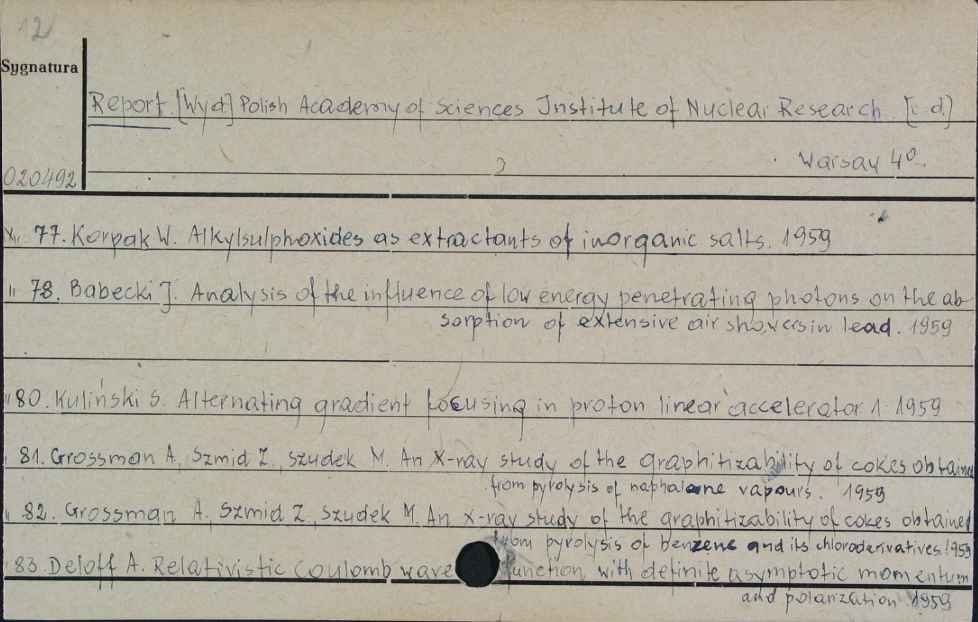 12
Sygnatura
Report [Wyd] Polish Academy of Sciences Institute of Nuclear Research [c.d.]
2 Warsaw 4º.
020492
77. Korpak W. Alkylsulphoxides as extractants of inorganic salts. 1959
" 78. Babecki J. Analysis of the influence of low energy penetrating photons on the ab-
sorption of extensive air showers in lead. 1959
" 80. Kuliński S. Alternating gradient focusing in proton linear accelerator 1. 1959
" 81. Grossman A, Szmid Z, Szudek M. An X-ray study of the graphitizability of cokes obtained
from pyrolysis of naphalene vapours. 1959
" 82. Grossman A. Szmid Z, Szudek M. An X-ray study of the graphitizability of cokes obtained
from pyrolysis of benzene and its chloroderivatives. 1959
83. Deloff A. Relativistic coulomb wave function with definite asymptotic momentum
and polarization. 1959